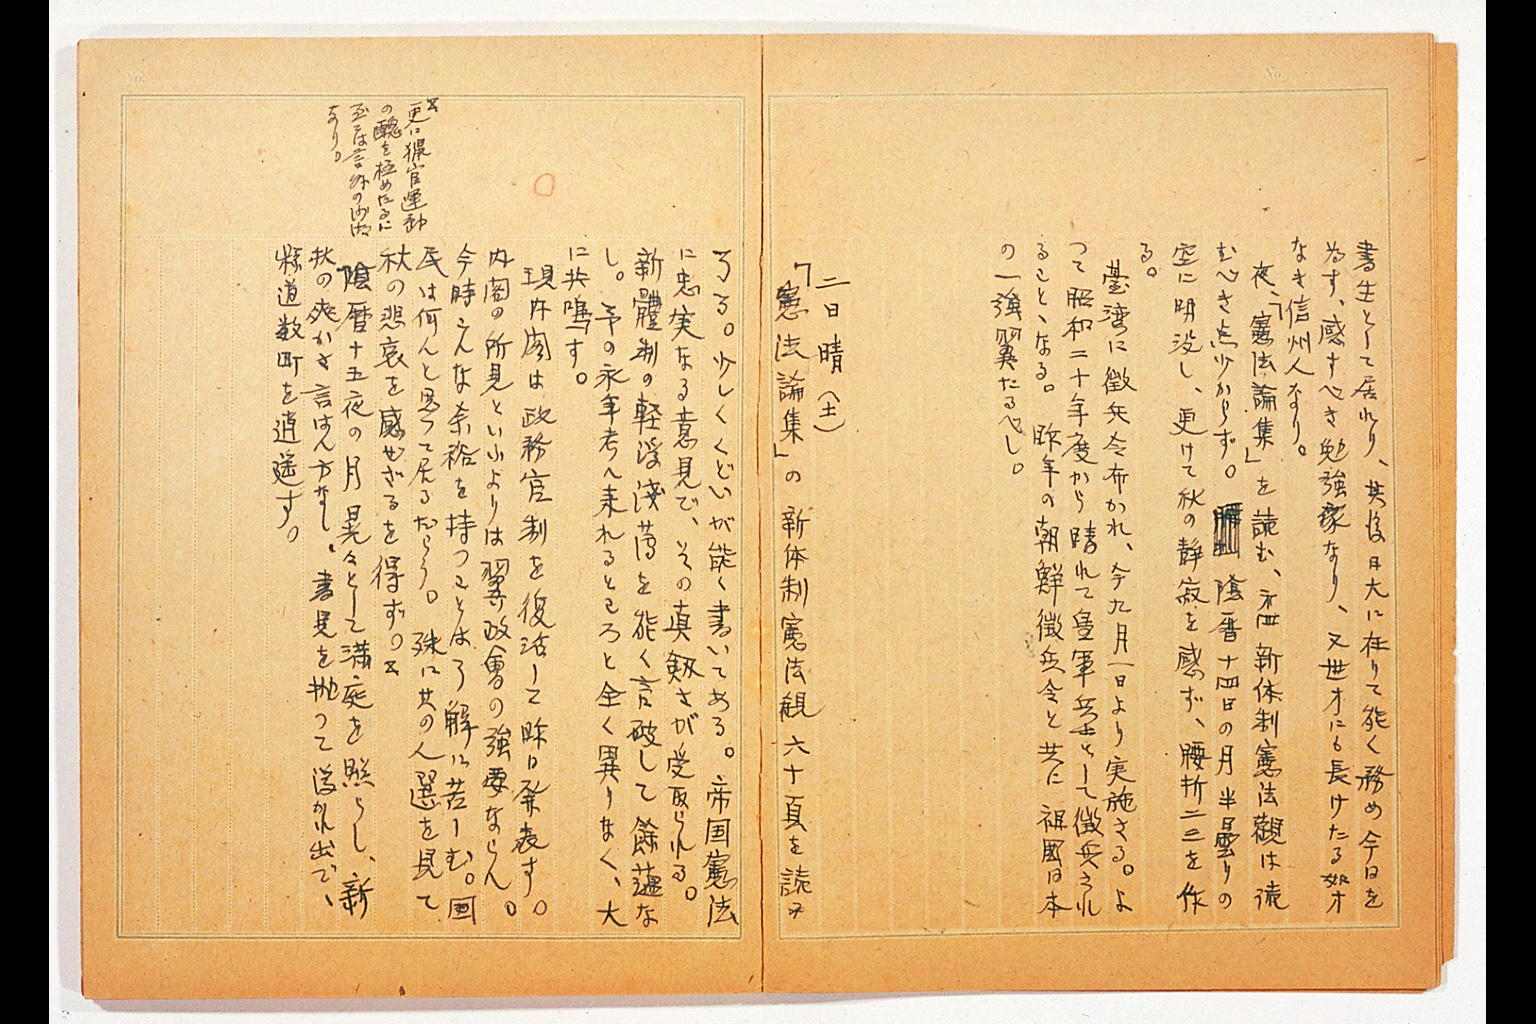 書生として居れり、其後日大に在りて能く務め今日を
為す、感すべき勉強家なり、又世才にも長けたる如才
なき信州人なり。
夜、「憲法論集」を読む、 新体制憲法観は読
むべき点少からず。 陰暦十四日の月半曇りの
空に明没し、更けて秋の静寂を感ず、腰折二三を作
る。
臺湾に徴兵令布かれ、今九月一日より実施さる。よ
つて昭和二十年度から晴れて皇軍兵士として徴兵され
ることゝなる。昨年の朝鮮徴兵令と共に祖國日本
の一強翼たるべし。
二日 晴 (土)
「憲法論集」の新体制憲法観六十頁を読み
了る。少しくくどいが能く書いてある。帝国憲法
に忠実なる意見で、その真剱さが受取られる。
新體制の軽浮浅薄を能く言破して餘蘊な
し。予の永年考へ来れるところと全く異りなく、大
に共鳴す。
現内閣は政務官制を復活して昨日発表す。
内閣の所見といふよりは翼政會の強要ならん。
今時そんな余裕を持つことはろ解に苦しむ。国
民は何んと思つて居るだらう。殊に其の人選を見て
秋の悲哀を感せざるを得ず。
陰暦十五夜の月晃々として満庭を照らし、新
秋の爽かさ言はん方なし、書見を抛つて浮かれ出で、
縣道数町を逍遥す。
更に猟官運動
の醜を極めたるに
至ては言外の沙汰
なり。